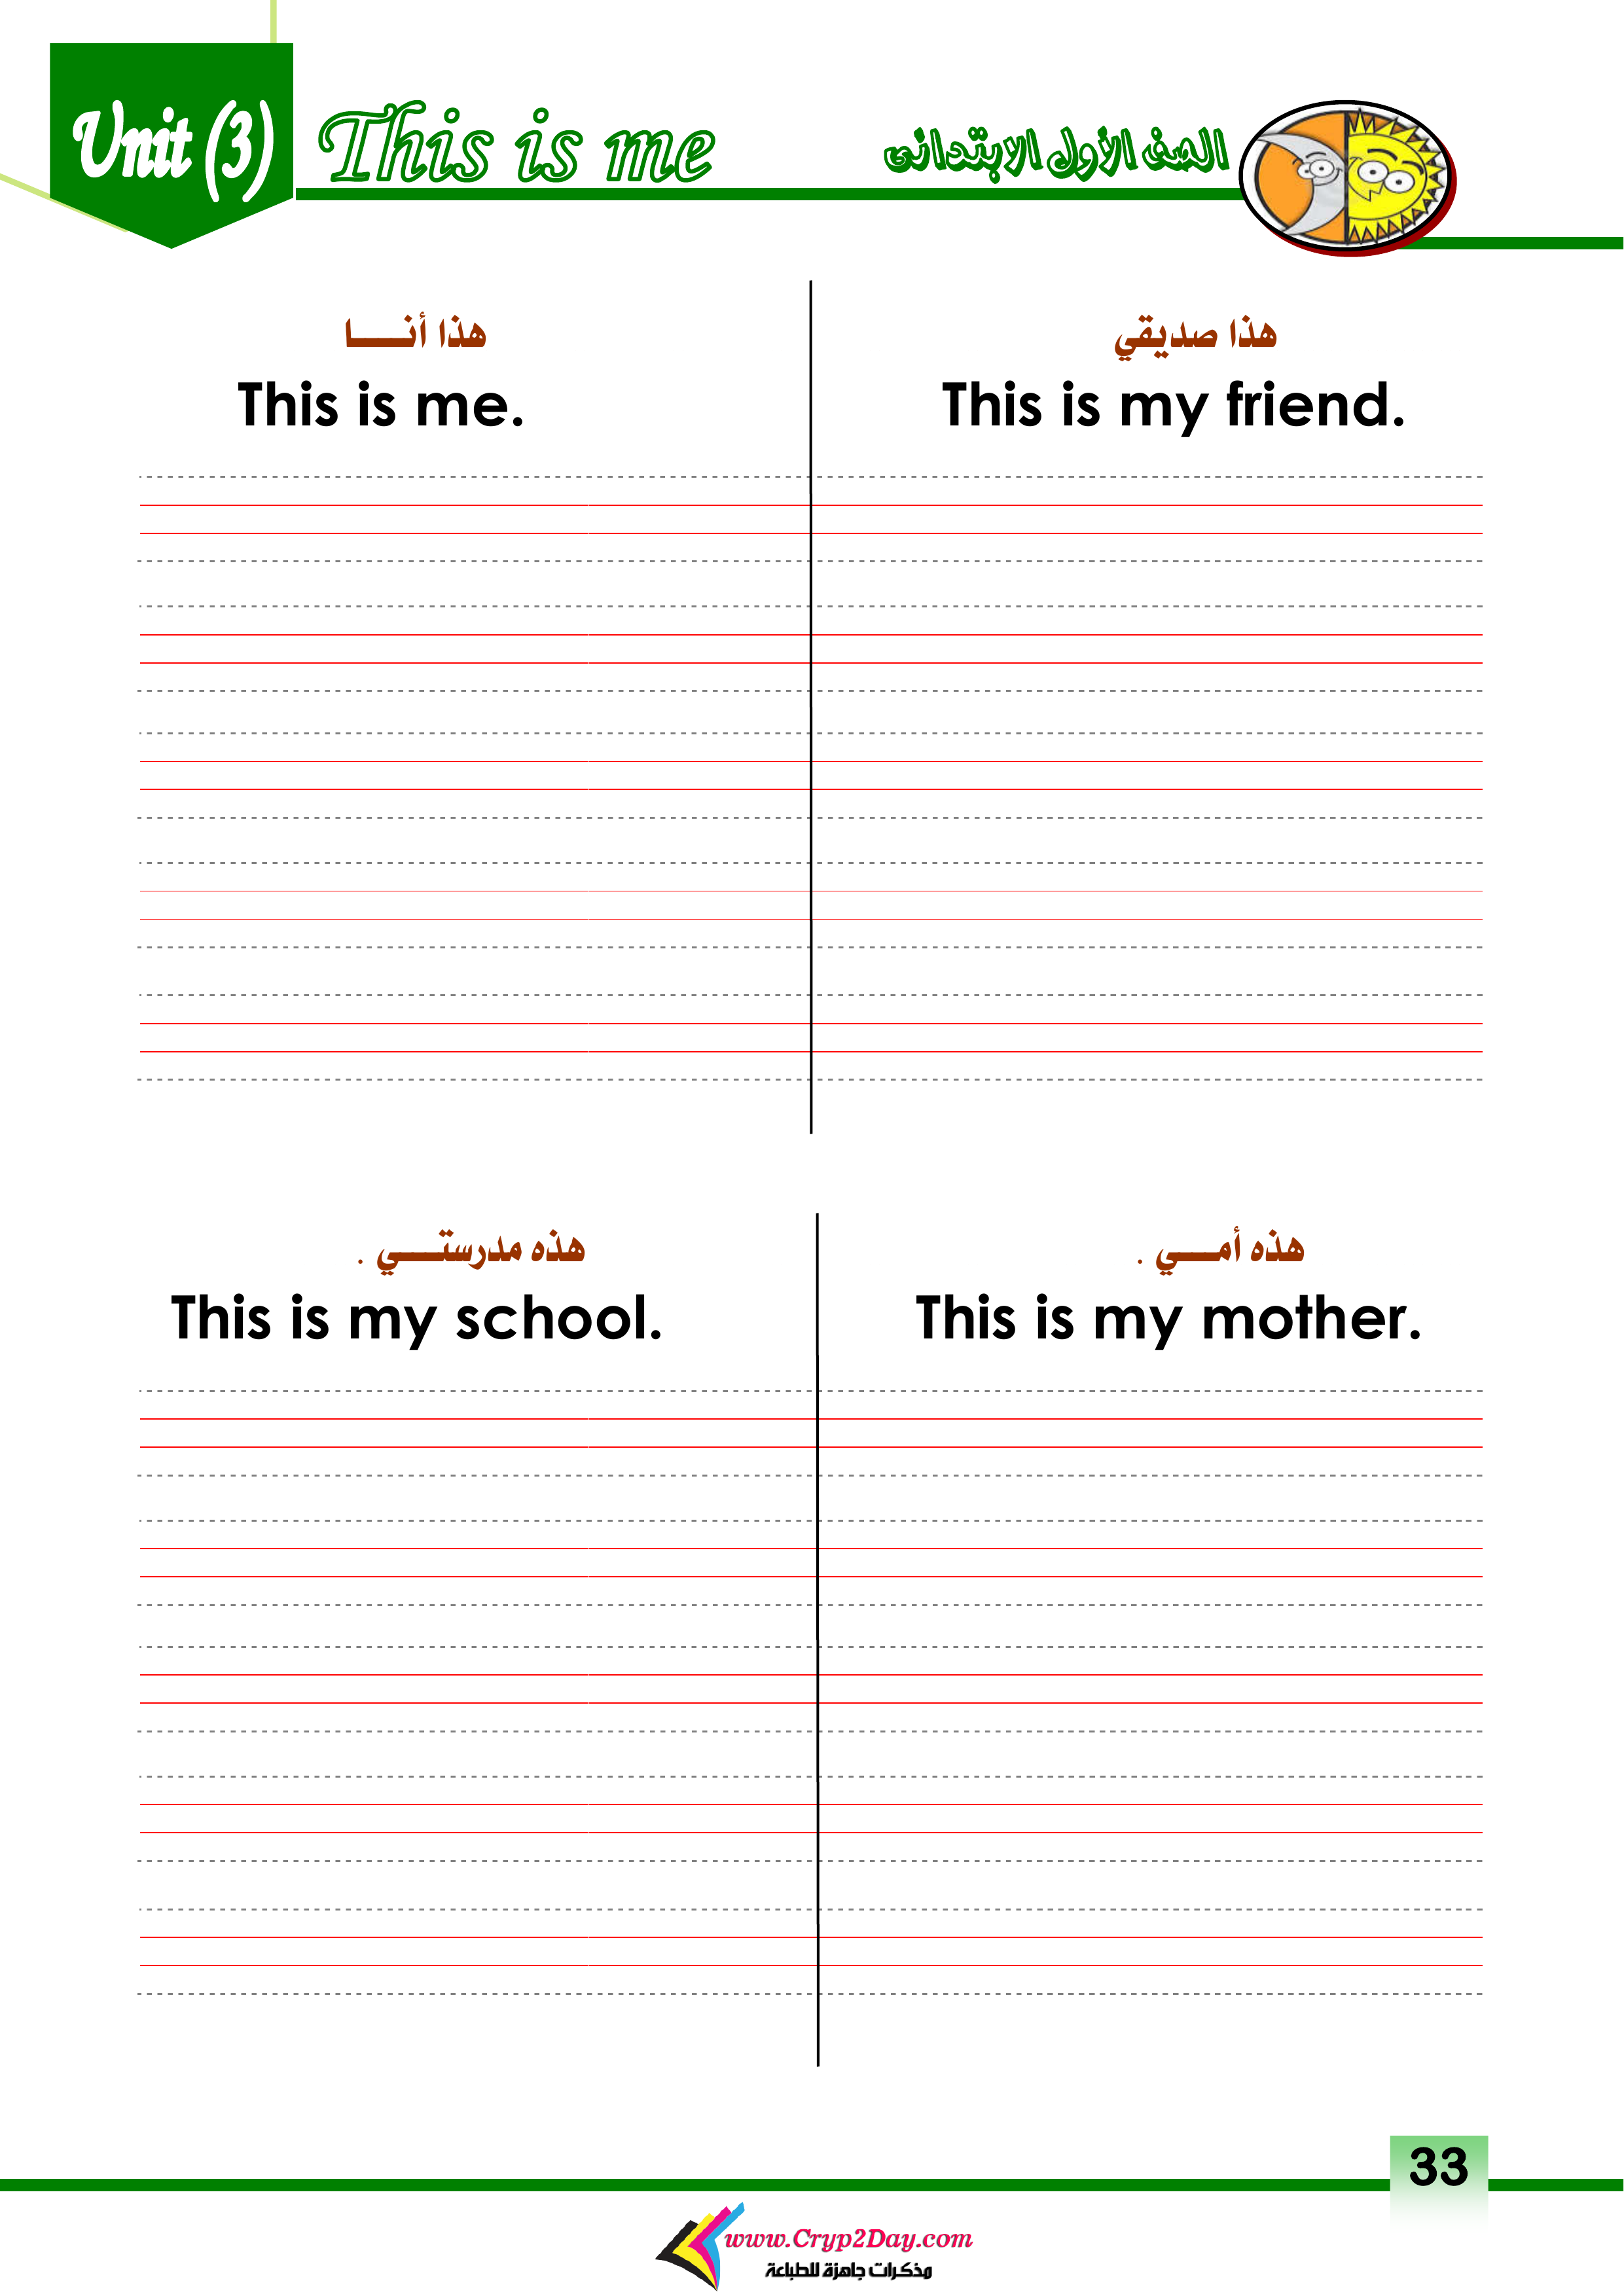 Unit (3)
This is me
الصف الأول الابتدائى
هذا أنـــــا
This is me.
هذا صديقي
This is my friend.
هذه مدرستـــي .
This is my school.
هذه أمـــي .
This is my mother.
33
www.Cryp2Day.com
مذكرات جاهزة للطباعة